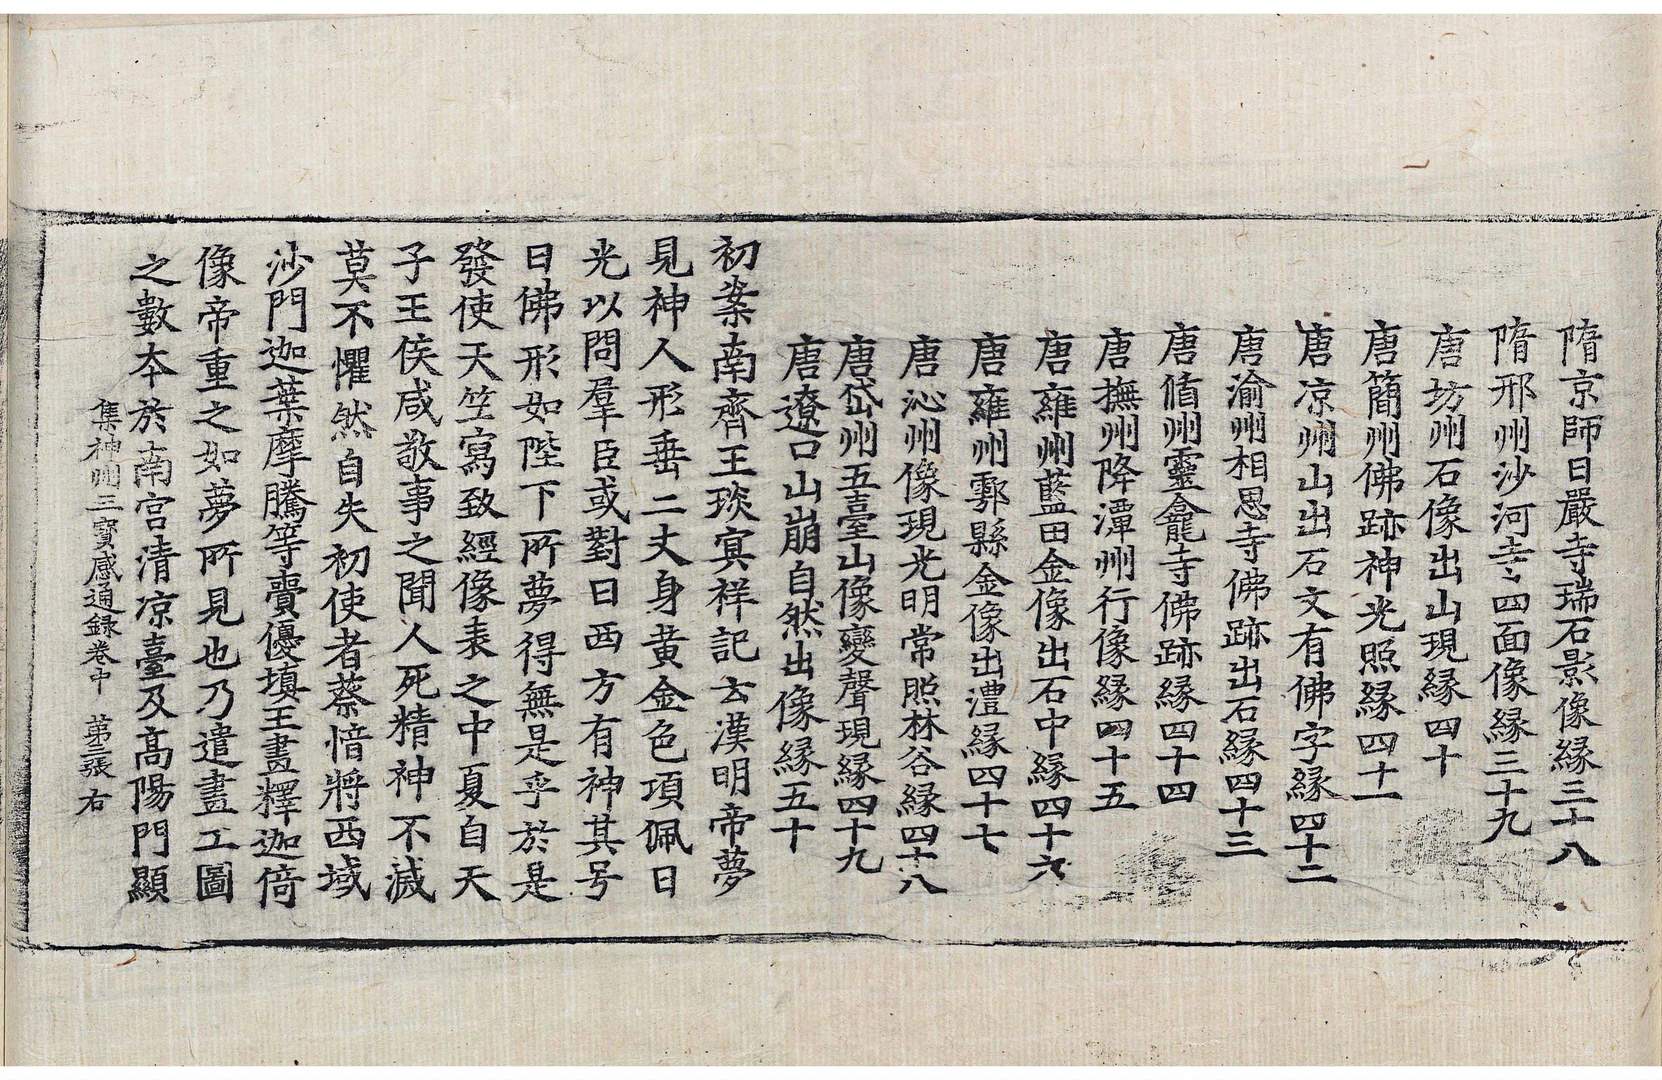 隋京師日嚴寺瑞石影像緣三十八
隋邢州沙河寺寺四面像緣三十九
唐坊州石像出山現緣四十
唐簡州佛跡神光照緣四十一
唐涼州山出石文有佛字緣四十二
唐渝州相思寺佛跡出石緣四十三
唐循州靈龕寺佛跡緣四十四
唐撫州降潭州行像緣四十五
唐雍州藍田金像出石中緣四十六
唐雍州鄠縣金像出澧緣四十七
唐沁州像現光明常照林谷緣四十八
唐岱州五臺山像變聲現緣四十九
唐遼口山崩自然出像緣五十
初案南齊王琰冥祥記云漢明帝夢
見神人形垂二丈身黃金色項佩日
光以問羣臣或對曰西方有神其号
曰佛形如陛下所夢得無是乎於是
發使天竺寫致經像表之中夏自天
子王侯咸敬事之聞人死精神不滅
莫不懼然自失初使者蔡愔將西域
沙門迦葉摩騰等賷優填王畫釋迦倚
像帝重之如夢所見也乃遣畫工圖
之數本於南宮清凉臺及高陽門顯
集神州三寶感通錄卷中　第三張　右